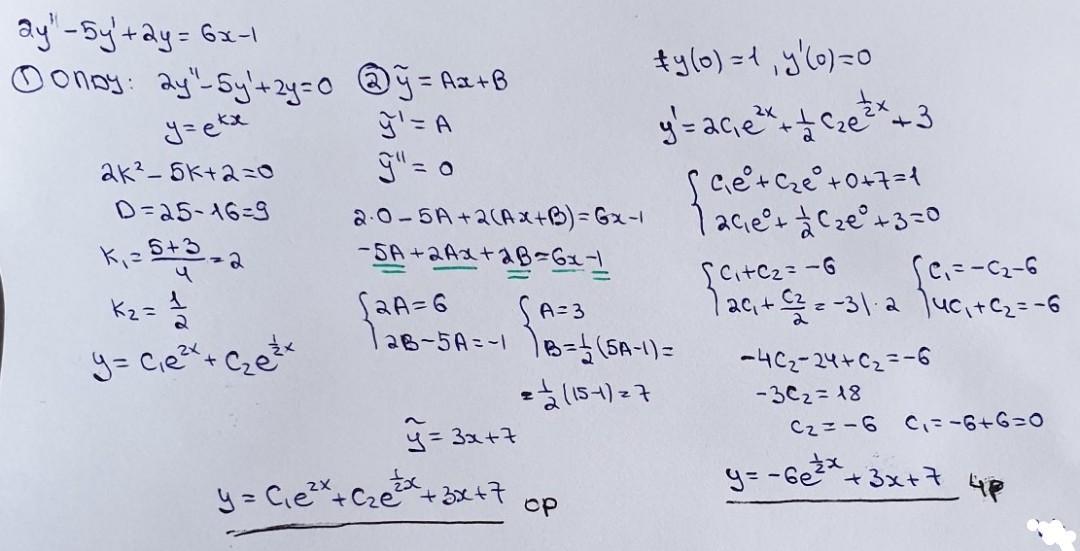 2y'' - 5y' + 2y = 6x - 1
① ОЛДУ: 2y'' - 5y' + 2y = 0
y = e^{kx}
2k² - 5k + 2 = 0
D = 25 - 16 = 9
k₁ = \frac{5+3}{4} = 2
k₂ = \frac{1}{2}
y = C₁e^{2x} + C₂e^{\frac{1}{2}x}
② ỹ = Ax + B
ỹ' = A
ỹ'' = 0
2·0 - 5A + 2(Ax + B) = 6x - 1
-5A + 2Ax + 2B = 6x - 1
{ 2A = 6 { A = 3
2B - 5A = -1 B = \frac{1}{2}(5A - 1) =
= \frac{1}{2}(15 - 1) = 7
ỹ = 3x + 7
y = C₁e^{2x} + C₂e^{\frac{1}{2}x} + 3x + 7 ОР
y(0) = 1, y'(0) = 0
y' = 2C₁e^{2x} + \frac{1}{2}C₂e^{\frac{1}{2}x} + 3
{ C₁e⁰ + C₂e⁰ + 0 + 7 = 1
2C₁e⁰ + \frac{1}{2}C₂e⁰ + 3 = 0
{ C₁ + C₂ = -6 { C₁ = -C₂ - 6
2C₁ + \frac{C₂}{2} = -3 |·2 4C₁ + C₂ = -6
-4C₂ - 24 + C₂ = -6
-3C₂ = 18
C₂ = -6 C₁ = -6 + 6 = 0
y = -6e^{\frac{1}{2}x} + 3x + 7 ЧР